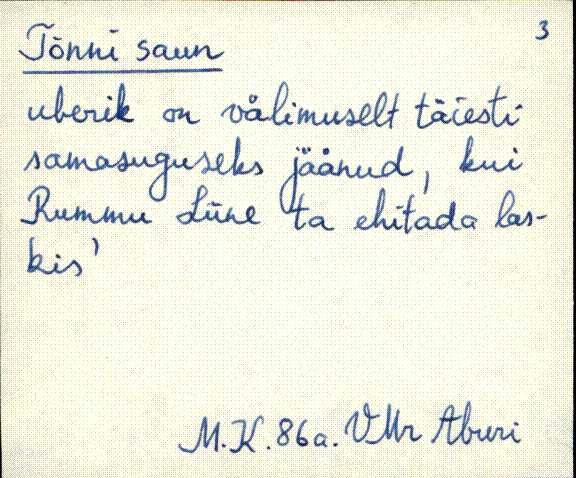 3
Tõnni saun
uberik on välimuselt täiesti
samasuguseks jäänud, kui
Rummu Liine ta ehitada las-
kis'
M.K. 86a. VMr Aburi